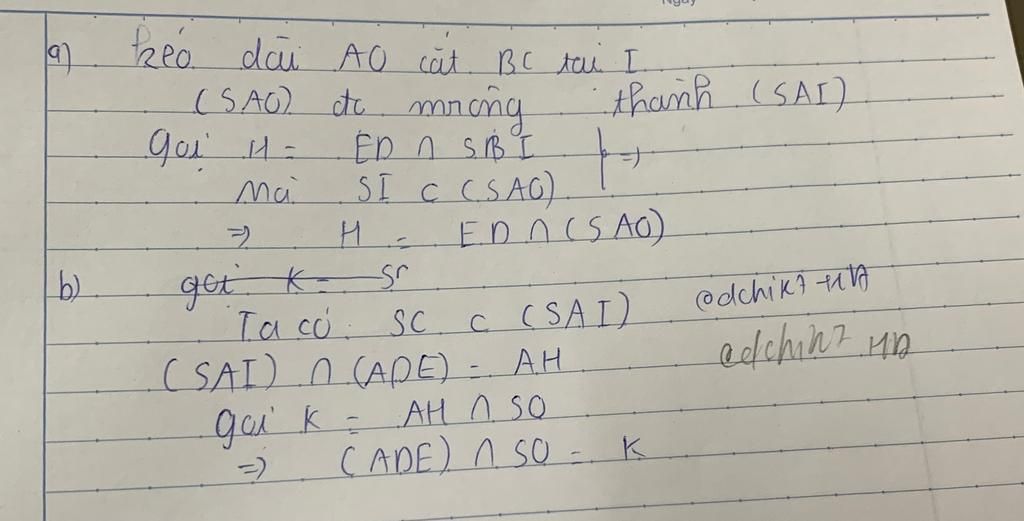 a) kéo dài AO cắt BC tại I
(SAO) đc mrộng thành (SAI)
Gọi H = ED ∩ SI
Mà SI ⊂ (SAO) } =>
=> H = ED ∩ (SAO)
b) gọi K = SC
Ta có SC ⊂ (SAI) @dchik7-HĐ
(SAI) ∩ (ADE) = AH @dchih7 HĐ
gọi K = AH ∩ SO
=> (ADE) ∩ SO = K